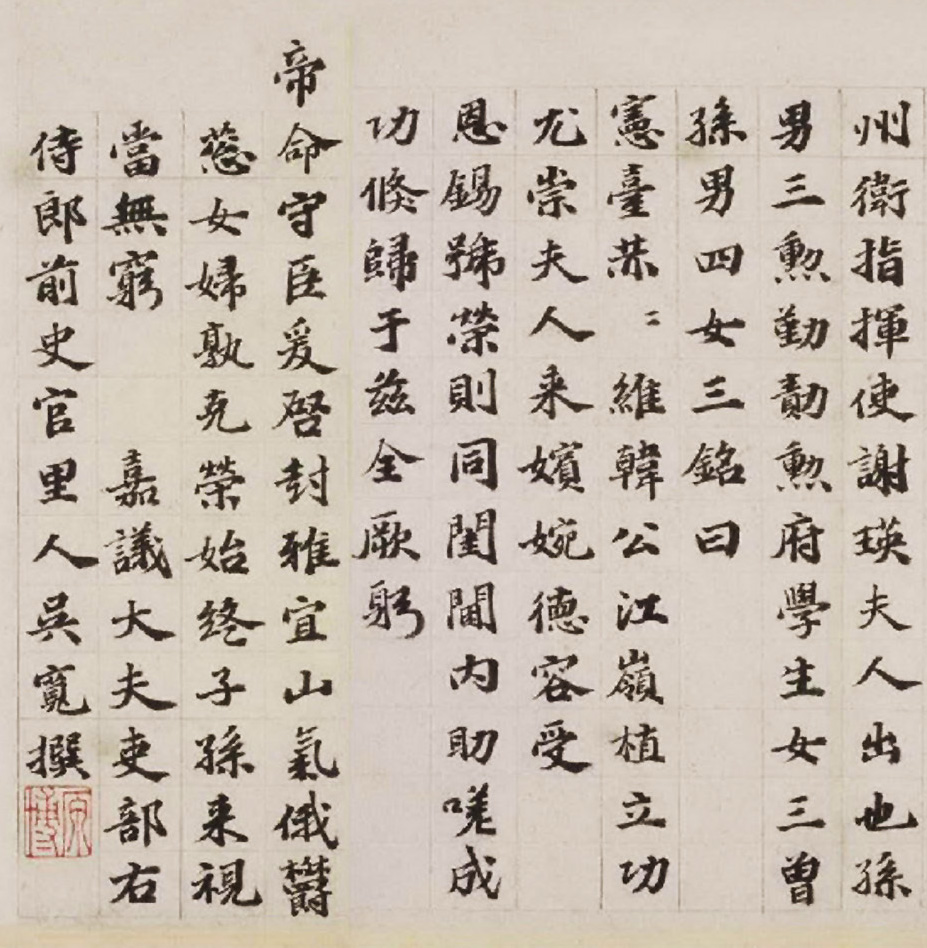 州衛指揮使謝瑛夫人出也孫
男三勲勤勣勲府學生女三曾
孫男四女三銘曰
憲臺恭〻維韓公江嶺植立功
尤崇夫人来嬪婉德容受
恩錫號榮則同閨閫内助嗟成
功倏歸于兹全厥躬
帝命守臣爰啓封雅宜山氣俄鬱
慈女婦孰克榮始終子孫来視
當無窮　嘉議大夫吏部右
侍郎前史官里人吳寛撰
原博